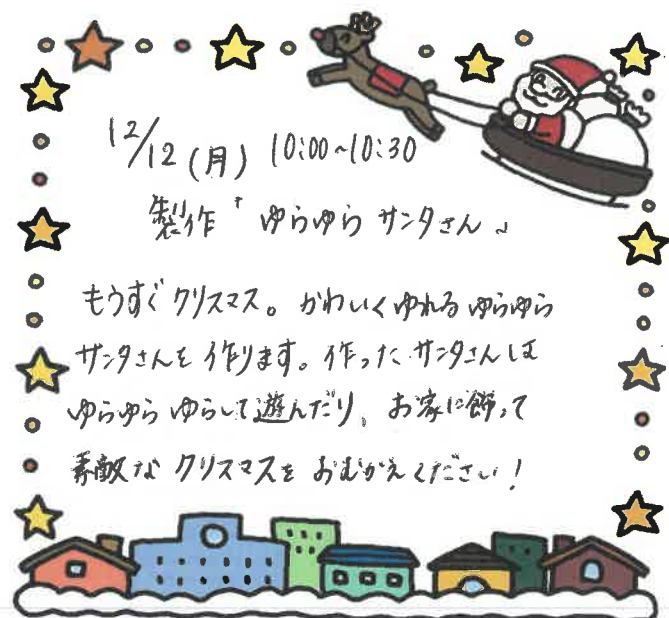 12/12(月) 10:00~10:30
製作「ゆらゆら サンタさん」
もうすぐクリスマス。かわいくゆれるゆらゆら
サンタさんを作ります。作ったサンタさんは
ゆらゆらゆらして遊んだり、お家に飾って
素敵なクリスマスをおむかえください!